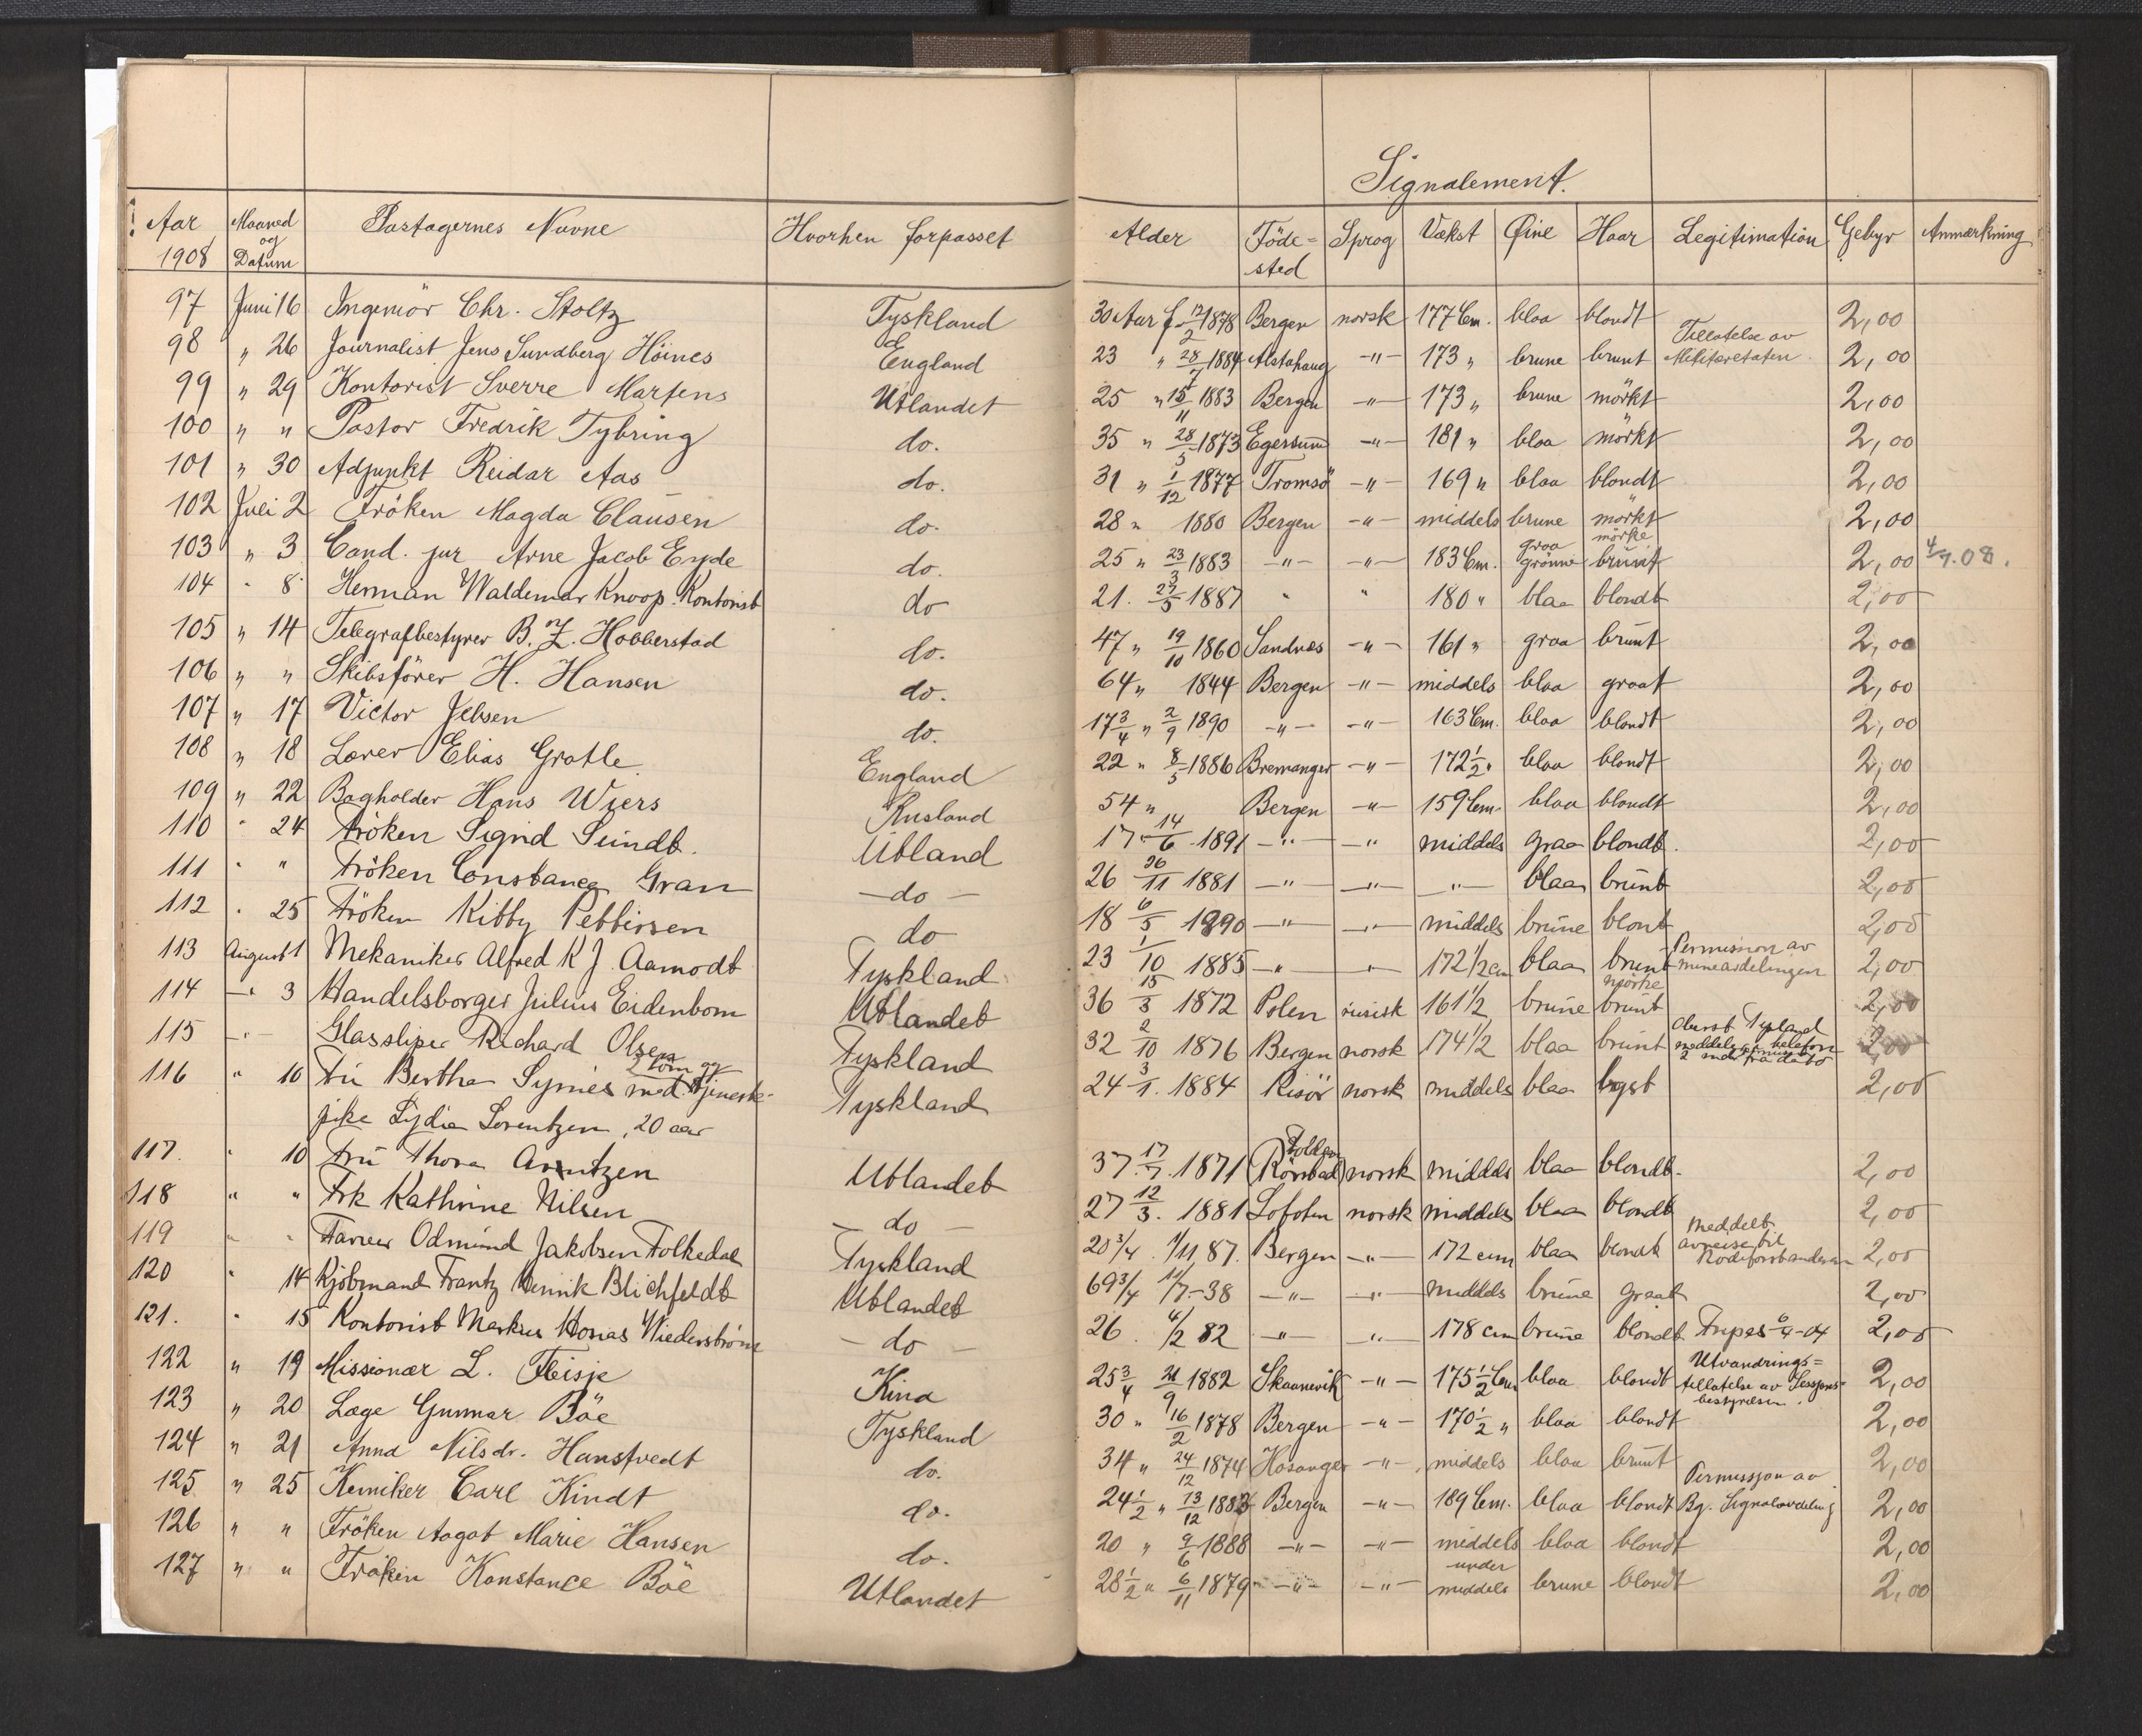 Signalement.
Aar 1908 Maaned og Datum Pastagernes Navne Hvorhen forpasset Alder Föde=sted Sprog Vækst Øine Haar Legitimation Gebyr Anmærkning
97 Juni 16 Ingeniör Chr. Stoltz Tyskland 30 Aar f. 12/2 1878 Bergen norsk 177 Cm. blaa blondt 2,00
98 " 26 Journalist Jens Sundberg Höines England 23 " 28/7 1884 Alstahaug -"- 173 " brune brunt Tillatelse av Militæretaten. 2,00
99 " 29 Kontorist Sverre Martens Utlandet 25 " 15/11 1883 Bergen -"- 173 " brune mörkt 2,00
100 " " Pastor Fredrik Tybring do. 35 " 28/5 1873 Egersund -"- 181 " blaa mörkt 2,00
101 " 30 Adjunkt Reidar Aas do. 31 " 1/12 1877 Tromsö -"- 169 " blaa blondt 2,00
102 Juli 2 Fröken Magda Clausen do. 28 " 1880 Bergen -"- middels brune mörkt 2,00
103 " 3 Cand. jur Arne Jacob Eyde do. 25 " 23/3 1883 -"- -"- 183 Cm. graa grönne mörke brunt 2,00 4/7.08.
104 " 8 Herman Waldemar Knoop. Kontorist do 21. 27/5 1887 " " 180 " blaa blondt 2,00
105 " 14 Telegrafbestyrer B. Z. Hobberstad do. 47 " 19/10 1860 Sandnes -"- 161 " graa brunt 2,00
106 " " Skibsförer H. Hansen do. 64 " 1844 Bergen -"- middels blaa graat 2,00
107 " 17 Victor Jebsen do. 17 3/4 " 2/9 1890 -"- -"- 163 Cm. blaa blondt 2,00
108 " 18 Lærer Elias Grotle England 22 " 8/5 1886 Bremanger -"- 172 1/2 " blaa blondt 2,00
109 " 22 Bogholder Hans Wiers Rusland 54 " Bergen -"- 159 Cm. blaa blondt 2,00
110 " 24 Fröken Sigrid Sundt. Utland 17 14/6 1891 -"- -"- middels graa blondt. 2,00
111 " " Fröken Constance Gran -do- 26 26/11 1881 -"- -"- -"- blaa brunt 2,00
112 " 25 Fröken Kitty Pettersen do 18 6/5 1890 -"- -"- middels brune blont 2,00
113 August 1 Mekaniker Alfred K J. Aamodt Tyskland 23 1/10 1885 -"- -"- 172 1/2 cm blaa brunt Permission av mineavdelingen 2,00
114 -"- 3 Handelsborger Julius Eidenbom Utlandet 36 15/3 1872 Polen rusisk 161 1/2 brune mörke brunt 2,00
115 -"- Glassliper Richard Olsen Tyskland 32 2/10 1876 Bergen norsk 174 1/2 blaa brunt 2 fra dato 2,00
116 " 10 Fru Bertha Symes med 2 og Tjenestepike Lydia Lorentzen, 20 aar Tyskland 24 3/1. 1884 Risör norsk middels blaa lyst 2,00
117. " 10 Fru Thora Arntzen Utlandet 37. 17/7. 1871 norsk middels blaa blondt. 2,00
118 " " Frk Kathrine Nilsen -do- 27 12/3. 1881 Lofoten norsk middels blaa blondt 2,00
119 " " Farver Odmund Jakobsen Folkedal Tyskland 20 3/4 1/11 87. Bergen -"- 172 cm blaa blondt meddelt avreise til 2,00
120 " 14 Kjöbmand Frantz Henrik Blichfeldt Utlandet 69 3/4 11/7-38 -"- -"- middels brune graat 2,00
121. " 15 Kontorist Markus Wiederström -do- 26. 4/2 82 -"- -"- 178 cm brune blondt 2,00
122 " 19 Missionær L. Teisje Kina 25 3/4 21/9 1882 Skaanevik -"- 175 1/2 Cm blaa blondt Utvandrings=tillatelse av Sessjons=bestyrelsen. 2,00
123 " 20 Læge Gunnar Böe Tyskland 30 " 16/2 1878 Bergen -"- 170 1/2 " blaa blondt 2,00
124 " 21 Anna Nilsdr. Hanstvedt do. 34 " 24/12 1874 Hosanger -"- middels blaa brunt 2,00
125 " 25 Kemiker Carl Kindt do. 24 1/2 " 13/12 1883 Bergen -"- 189 Cm. blaa blondt Permissjon av Bg. Signalavdeling 2,00
126 " " Fröken Aagot Marie Hansen do. 20 " 9/6 1888 -"- -"- middels blaa blondt 2,00
127 " " Fröken Konstance Böe Utlandet 28 1/2 " 6/11 1879 -"- -"- under middels brune blondt 2,00